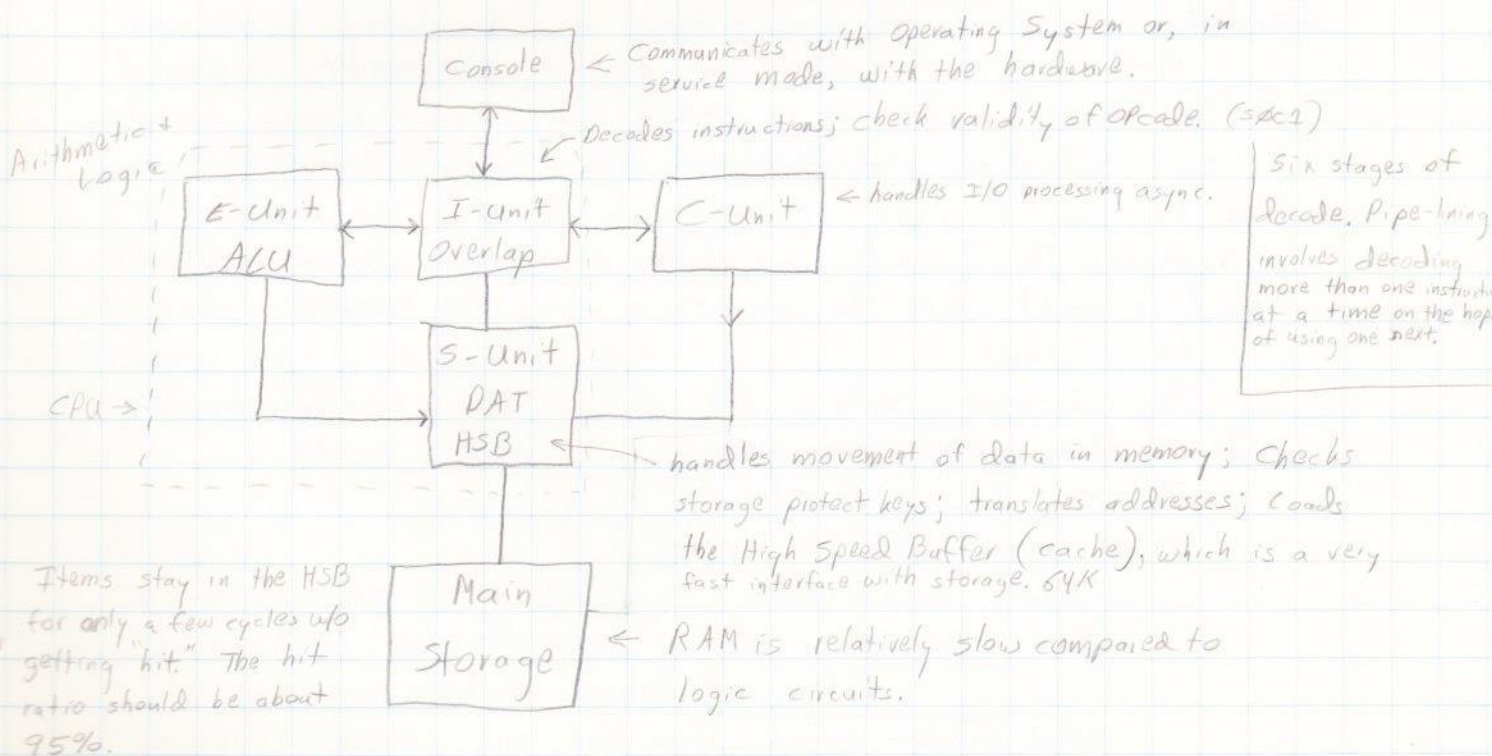 Console
← Communicates with Operating System or, in
service mode, with the hardware.
Decodes instructions; check validity of opcode. (SØC1)
Arithmetic +
Logic
E-Unit
ALU
I-Unit
Overlap
C-Unit
← handles I/O processing async.
Six stages of
decode. Pipe-lining
involves decoding
more than one
at a time on the
of using one next.
CPU →
S-Unit
DAT
HSB
handles movement of data in memory; Checks
storage protect keys; translates addresses; Loads
the High Speed Buffer (cache), which is a very
fast interface with storage. 64K
Items stay in the HSB
for only a few cycles w/o
getting "hit." The hit
ratio should be about
95%.
Main
Storage
← RAM is relatively slow compared to
logic circuits.